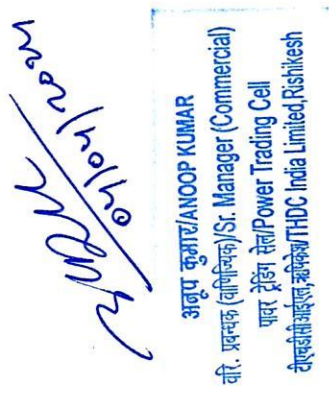 04/04/2024
अनूप कुमार/ANOOP KUMAR
वरि. प्रबन्धक (वाणिज्यिक)/Sr. Manager (Commercial)
पावर ट्रेडिंग सेल/Power Trading Cell
टीएचडीसी आईएल, ऋषिकेश/THDC India Limited, Rishikesh